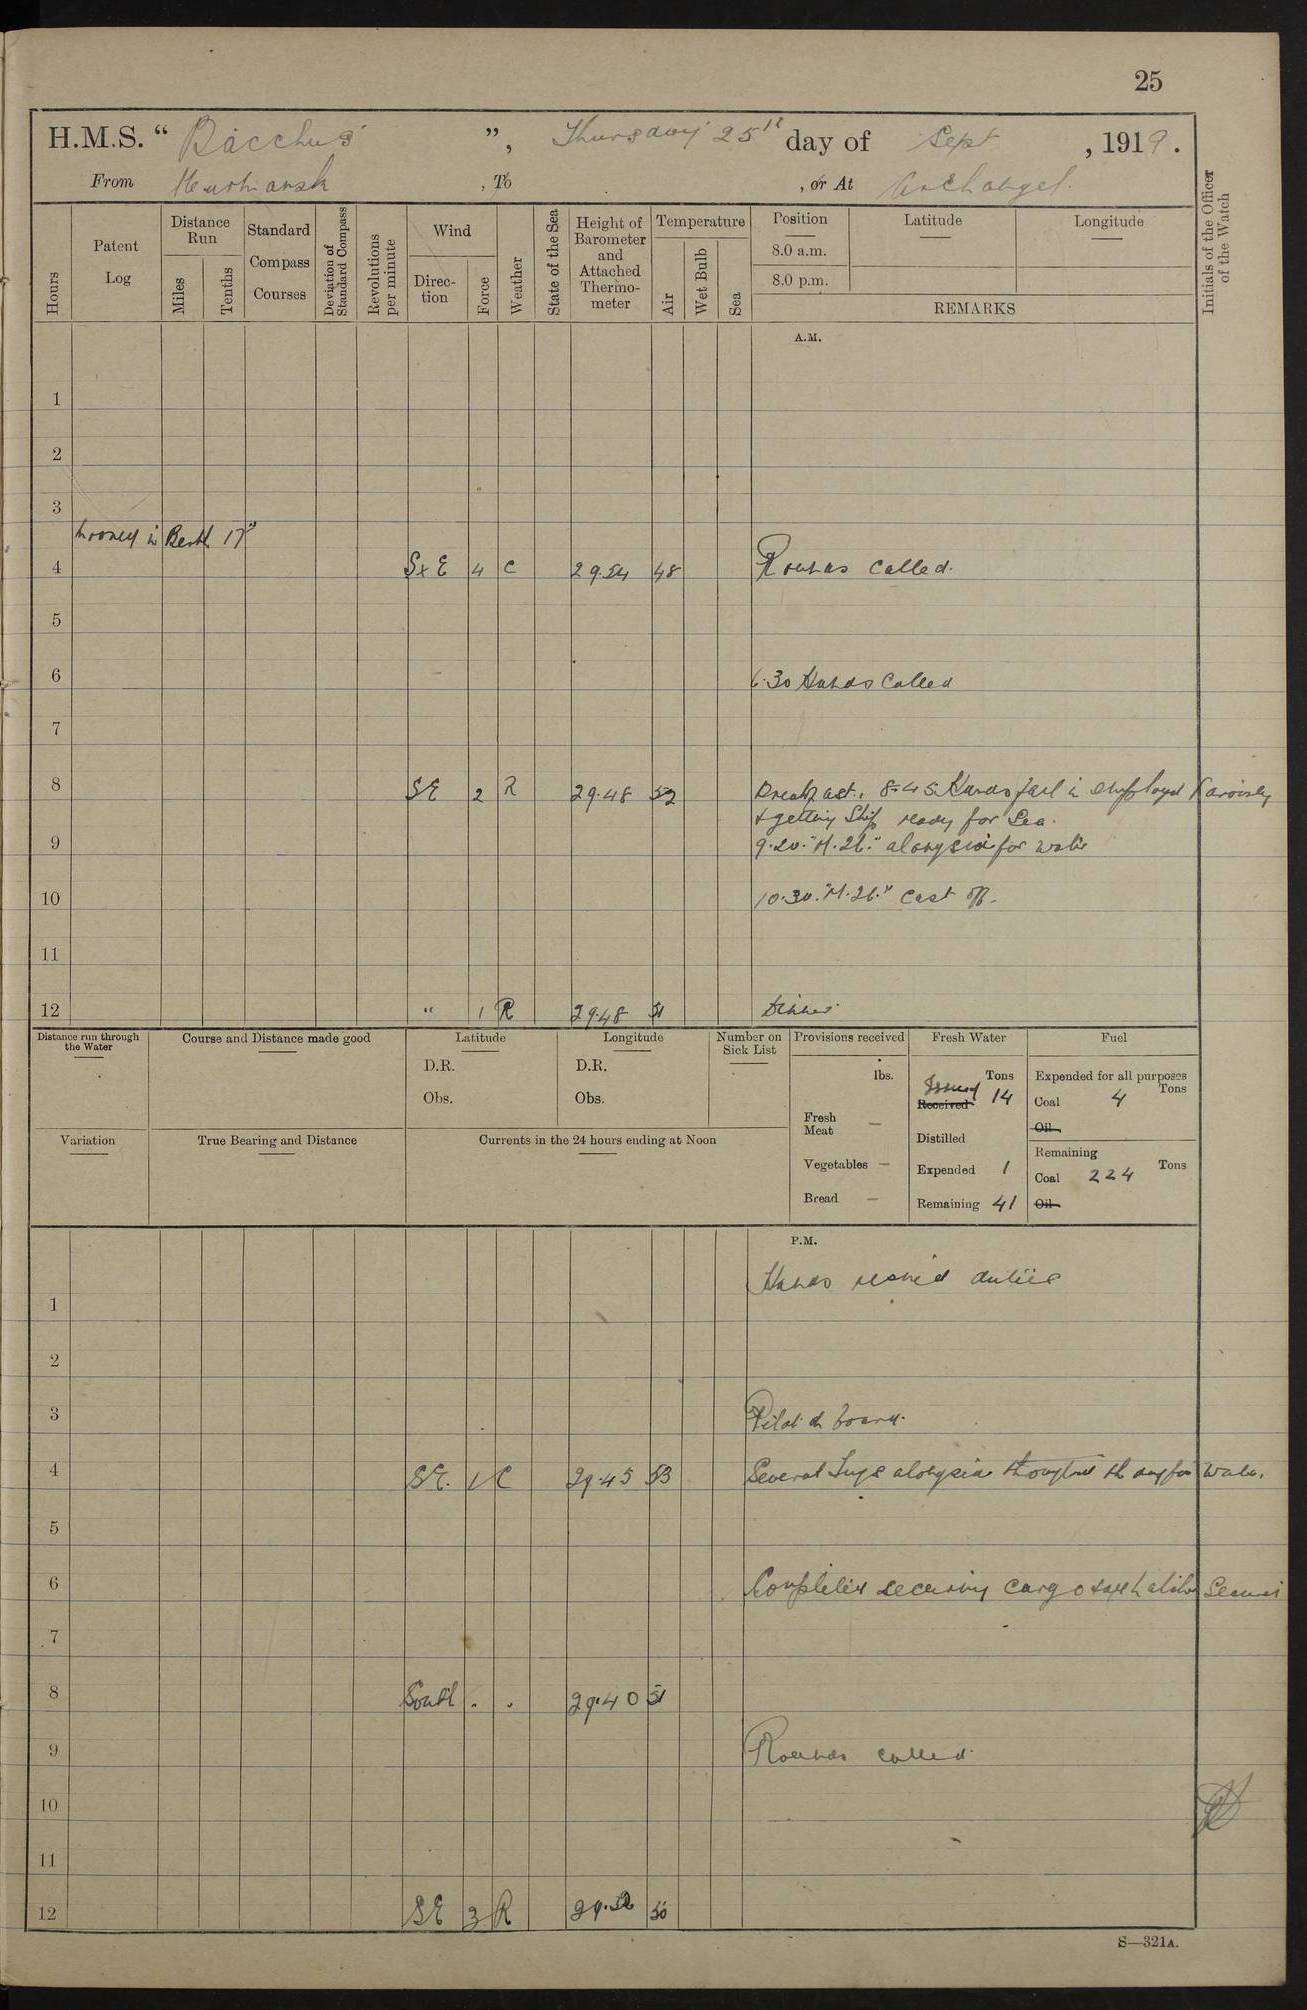 25
H.M.S. “ Bacchus ”, Thursday 25th day of Sept , 1919.
From Murmansk , To , or At Archangel.
Initials of the Officer of the Watch
Hours
Patent Log
Distance Run
Miles
Tenths
Standard Compass Courses
Deviation of Standard Compass
Revolutions per minute
Wind
Direc-tion
Force
Weather
State of the Sea
Height of Barometer and Attached Thermo-meter
Temperature
Air
Wet Bulb
Sea
Position
8.0 a.m.
8.0 p.m.
Latitude
Longitude
REMARKS
A.M.
1
2
3
Moored in Berth 17"
4 SxE 4 C 29.54 48 Rounds Called.
5
6 6.30 Hands Called
7
8 SE 2 R 29.48 52 Breakfast. 8.45 Hands fall in employed variously
& getting Ship ready for Sea.
9 9.20. "M.26." alongside for water
10 10.30. "M.26." Cast off.
11
12 " 1 R 29.48 51 Dinner
Distance run through the Water
Course and Distance made good
Latitude
D.R.
Obs.
Longitude
D.R.
Obs.
Number on Sick List
Variation
True Bearing and Distance
Currents in the 24 hours ending at Noon
Provisions received
lbs.
Fresh Meat —
Vegetables —
Bread —
Fresh Water
Tons
Issued
Received 14
Distilled
Expended 1
Remaining 41
Fuel
Expended for all purposes
Tons
Coal 4
Oil
Remaining
Tons
Coal 224
Oil
P.M.
Hands resumed duties
1
2
3 Pilot on board.
4 SE. 1 C 29.45 53 Several Tugs alongside throughout the day for water.
5
6 Completed securing cargo & hatches Secured
7
8 South . . 29.40 51
9 Rounds called.
10
11
12 SE 3 R 50
S—321A.